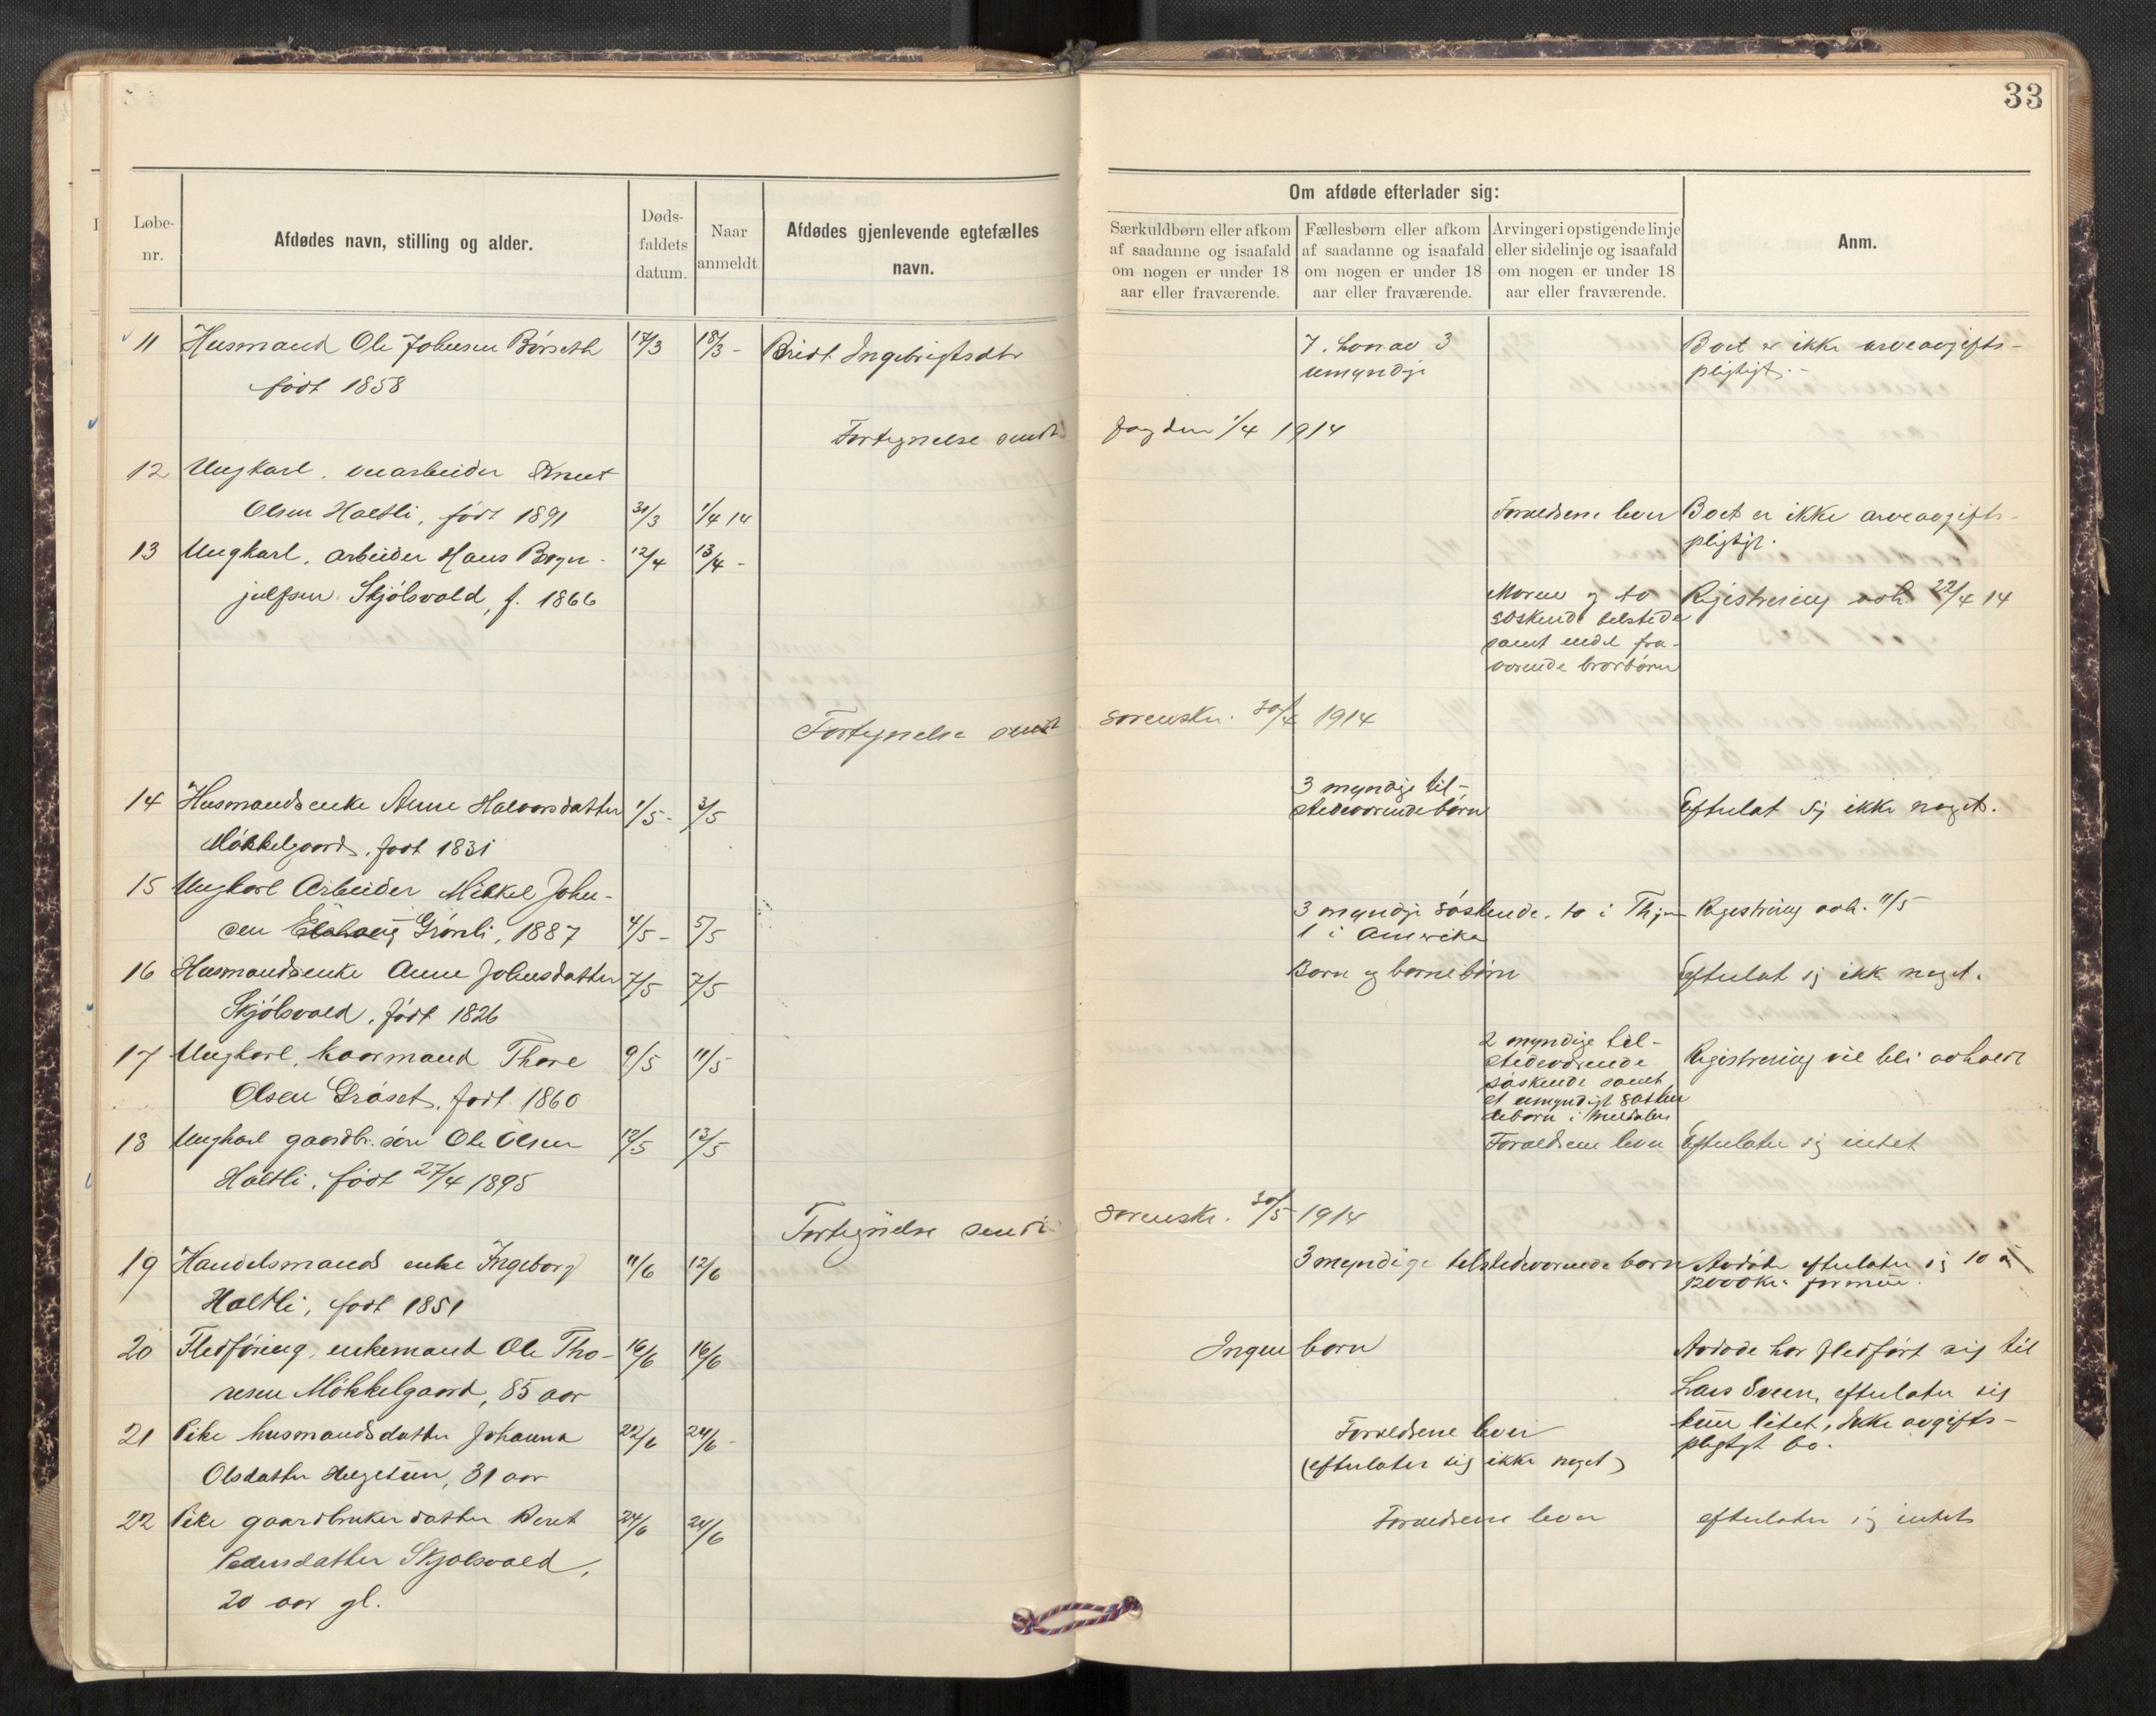 33
Løbe-
nr.
Afdødes navn, stilling og alder.
Døds-
faldets
datum.
Naar
anmeldt
Afdødes gjenlevende egtefælles
navn.
Om afdøde efterlader sig:
Særkuldbørn eller afkom
af saadanne og isaafald
om nogen er under 18
aar eller fraværende.
Fællesbørn eller afkom
af saadanne og isaafald
om nogen er under 18
aar eller fraværende.
Arvinger i opstigende linje
eller sidelinje og isaafald
om nogen er under 18
aar eller fraværende.
Anm.
11 Husmand Ole Johnsen Börseth 17/3 18/3 - Beret Ingebrigtsdtr 7. hvorav 3 Boet er ikke arveavgifts-
født 1858 umyndige pligtigt. -
Fortegnelse sendt fogden 1/4 1914
12 Ungkarl. Knut
Olsen Holtli, født 1891 31/3 1/4 14 Forældrene lever Boet er ikke arveavgifts-
pligtigt.
13 Ungkarl, arbeider Hans Bryn- 12/4 13/4 -
julfsen Skjölsvold, f. 1866 Moren og to Registrering avh. 22/4 14
söskende tilstede
samt endel fra-
værende brorbörn
Fortegnelse sendt sorenskr. 30/4 1914
14 Husmandsenke Anne Halvorsdatter 1/5 - 3/5 3 myndige til- Efterlat sig ikke noget.
Mökkelgaard, født 1831 stedeværende börn
15 Ungkarl Arbeider Mikkel John-
sen Grönli, 1887 4/5 - 5/5 3 myndige söskende, to i Thjem Registrering avh. 11/5
1 i Amerika
16 Husmandsenke Anne Johnsdatter 7/5 7/5 Barn og barnebörn Efterlat sig ikke noget.
Skjölsvold, født 1826
17 Ungkarl, kaarmand Thore 9/5 11/5 2 myndige til- Registrering vil bli avholdt
Olsen Gråset, født 1860 stedeværende
söskende samt
et umyndigt søster
barn i Meldalen
18 Ungkarl gaardbr. søn Ole Olsen 12/5 13/5 Forældrene lever Efterlater sig intet
Holtli, født 27/4 1895
Fortegnelse sendt sorenskr. 30/5 1914
19 Handelsmands enke Ingeborg 11/6 12/6 3 myndige tilstedeværende barn Avdöde efterlater sig 10 à
Holtli, født 1851 12000 kr. formue.
20 Fledföring, enkemand Ole Tho- 16/6 16/6 Ingen barn Avdöde har fledfört sig til
resen Mökkelgaard, 85 aar Lars Sveen, efterlater sig
21 Pike husmandsdatter Johanna 22/6 24/6 - Forældrene lever kun litet, Ikke avgifts-
Olsdatter Hegstuen, 31 aar (efterlater sig ikke noget) pligtigt bo.
22 Pike gaardbruker datter Beret 24/6 24/6 Forældrene lever efterlater sig intet
Pedersdatter Skjölsvold,
20 aar gl.